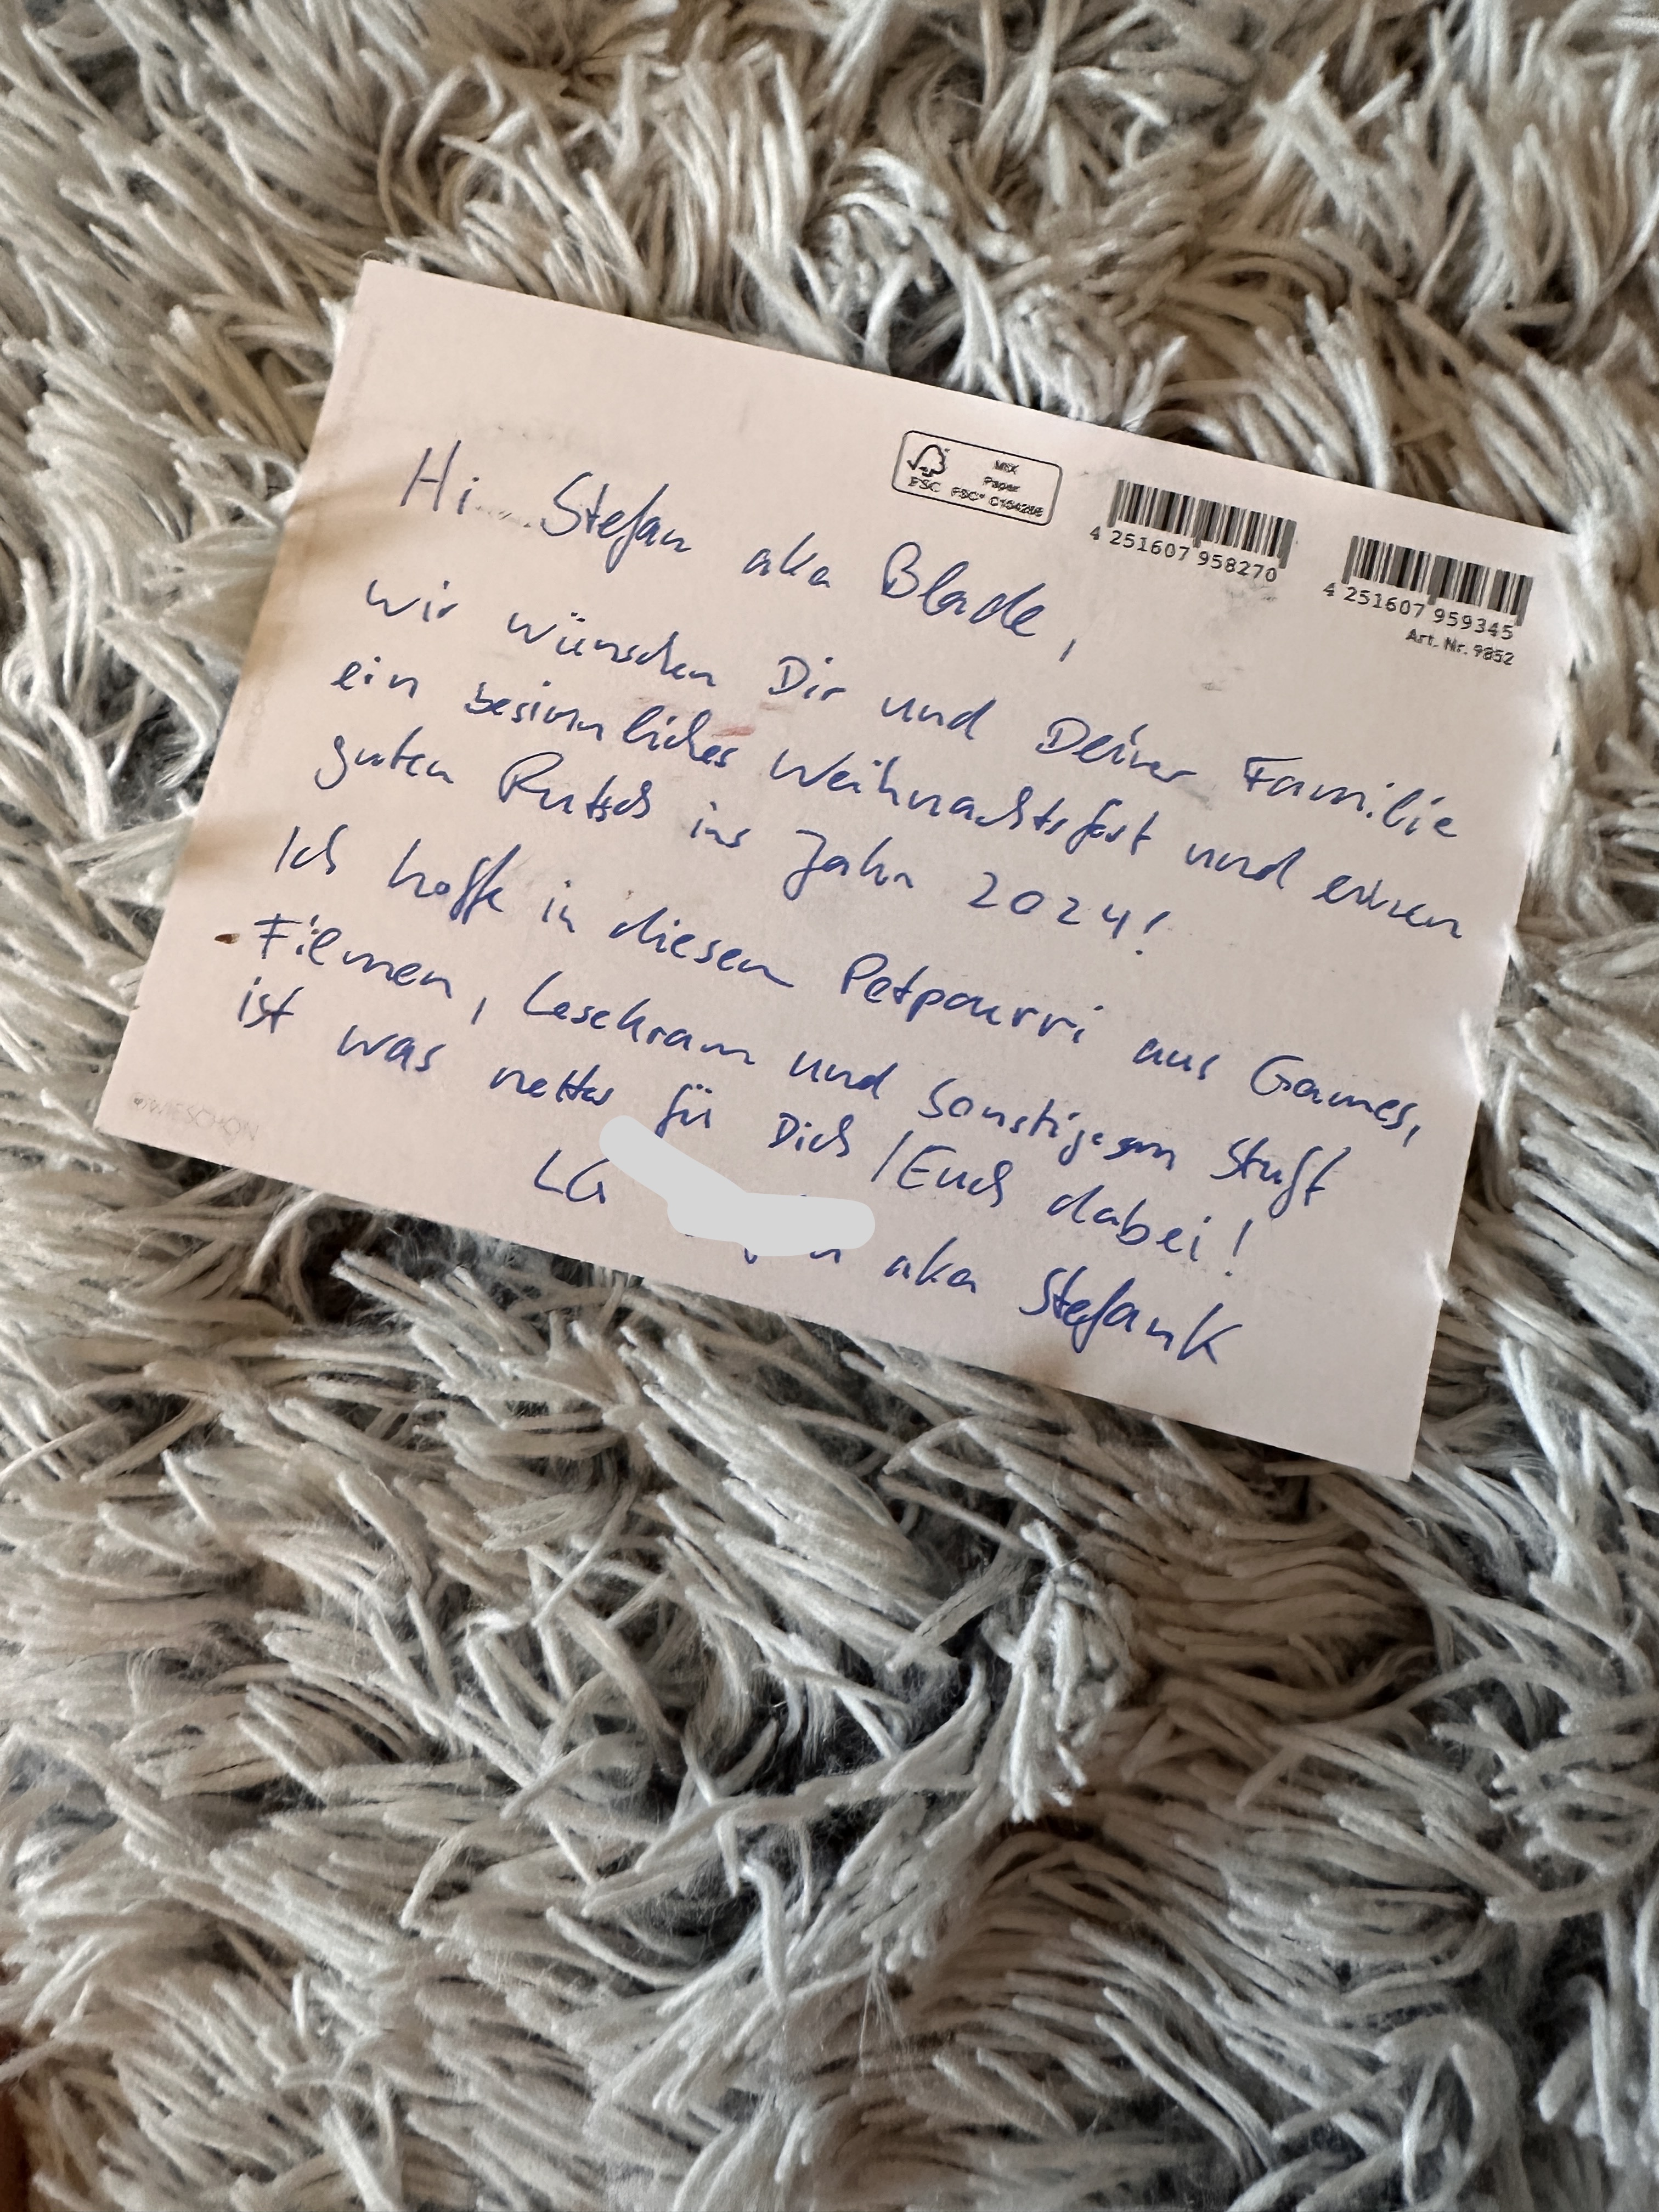 MIX
Paper
FSC FSC® C104286
4 251607 958270
4 251607 959345
Art. Nr. 9852
Hi Stefan aka Blade,
wir wünschen Dir und Deiner Familie
ein besinnliches Weihnachtsfest und einen
guten Rutsch ins Jahr 2024!
Ich hoffe in diesem Petpourri aus Games,
Filmen, Lesekram und sonstigem Stuff
ist was nettes für Dich/Euch dabei!
LG
aka StefanK
WIESCHÖN